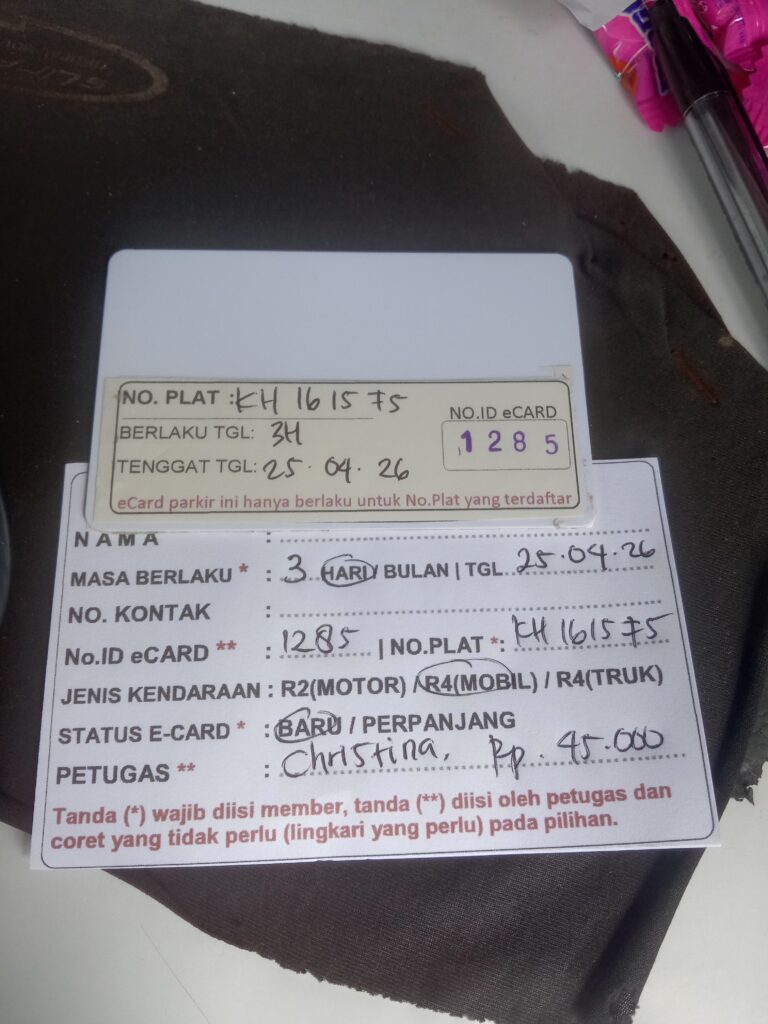 NO. PLAT : KH 1615 75
NO.ID eCARD
BERLAKU TGL: 3H
1285
TENGGAT TGL: 25.04.26
eCard parkir ini hanya berlaku untuk No.Plat yang terdaftar
NAMA :
MASA BERLAKU * : 3 HARI / BULAN | TGL 25.04.26
NO. KONTAK :
No.ID eCARD ** : 1285 | NO.PLAT *: KH 1615 75
JENIS KENDARAAN : R2(MOTOR) / R4(MOBIL) / R4(TRUK)
STATUS E-CARD * : BARU / PERPANJANG
PETUGAS ** : Christina, Rp. 45.000
Tanda (*) wajib diisi member, tanda (**) diisi oleh petugas dan
coret yang tidak perlu (lingkari yang perlu) pada pilihan.